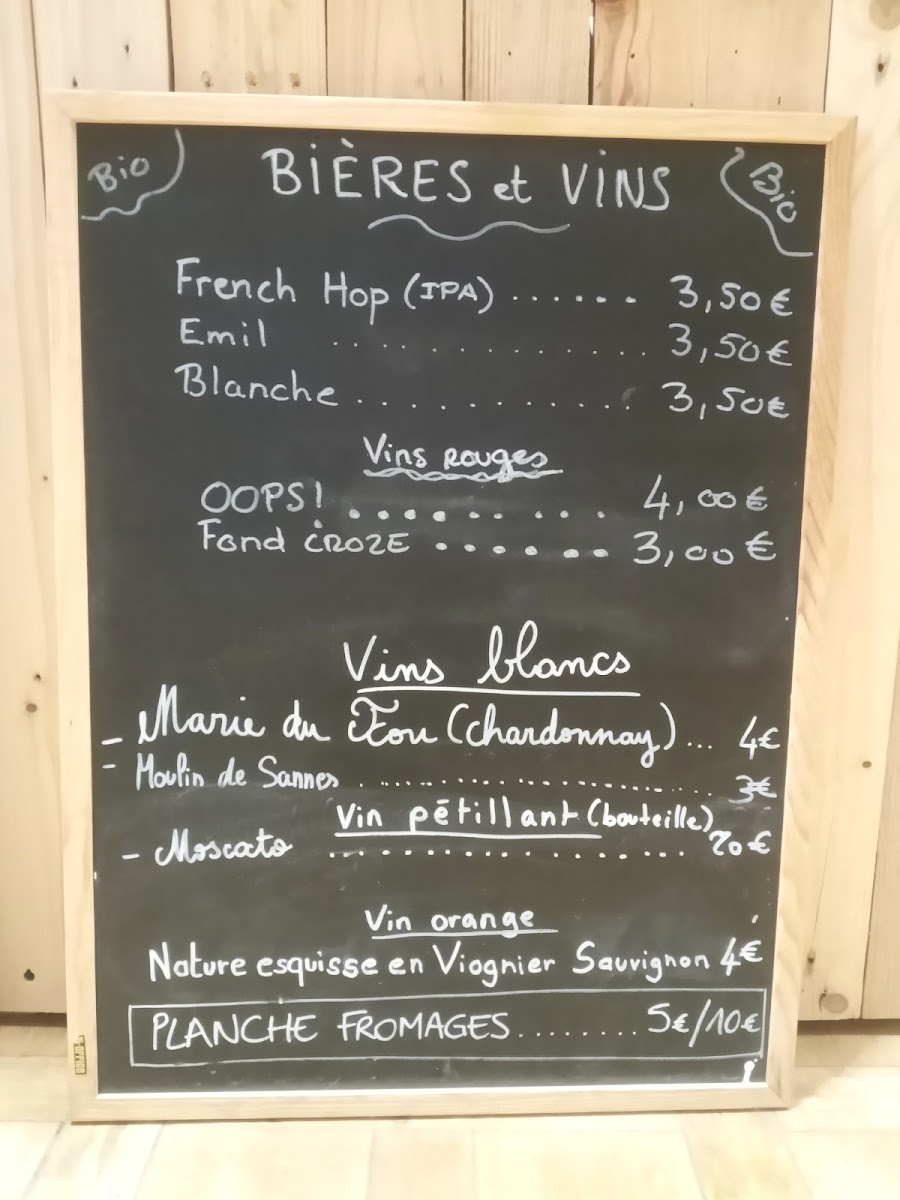 Bio
BIÈRES et VINS
Bio
French Hop (IPA) ...... 3,50€
Emil ............. 3,50€
Blanche............ 3,50€
Vins Rouges
OOPS! .......... 4,00€
Fond CROZE ...... 3,00€
Vins blancs
- Marie du Fou (Chardonnay) ... 4€
- Moulin de Sannes .................... 3€
Vin pétillant (bouteille)
- Moscato ............... 20€
Vin orange
Nature esquisse en Viognier Sauvignon 4€
PLANCHE FROMAGES......... 5€/10€